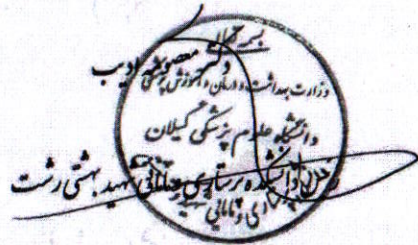 بسمه تعالی
دکتر معصومه ادیب
وزارت بهداشت، درمان و آموزش پزشکی
دانشگاه علوم پزشکی گیلان
دانشکده پرستاری و مامایی شهید بهشتی رشت